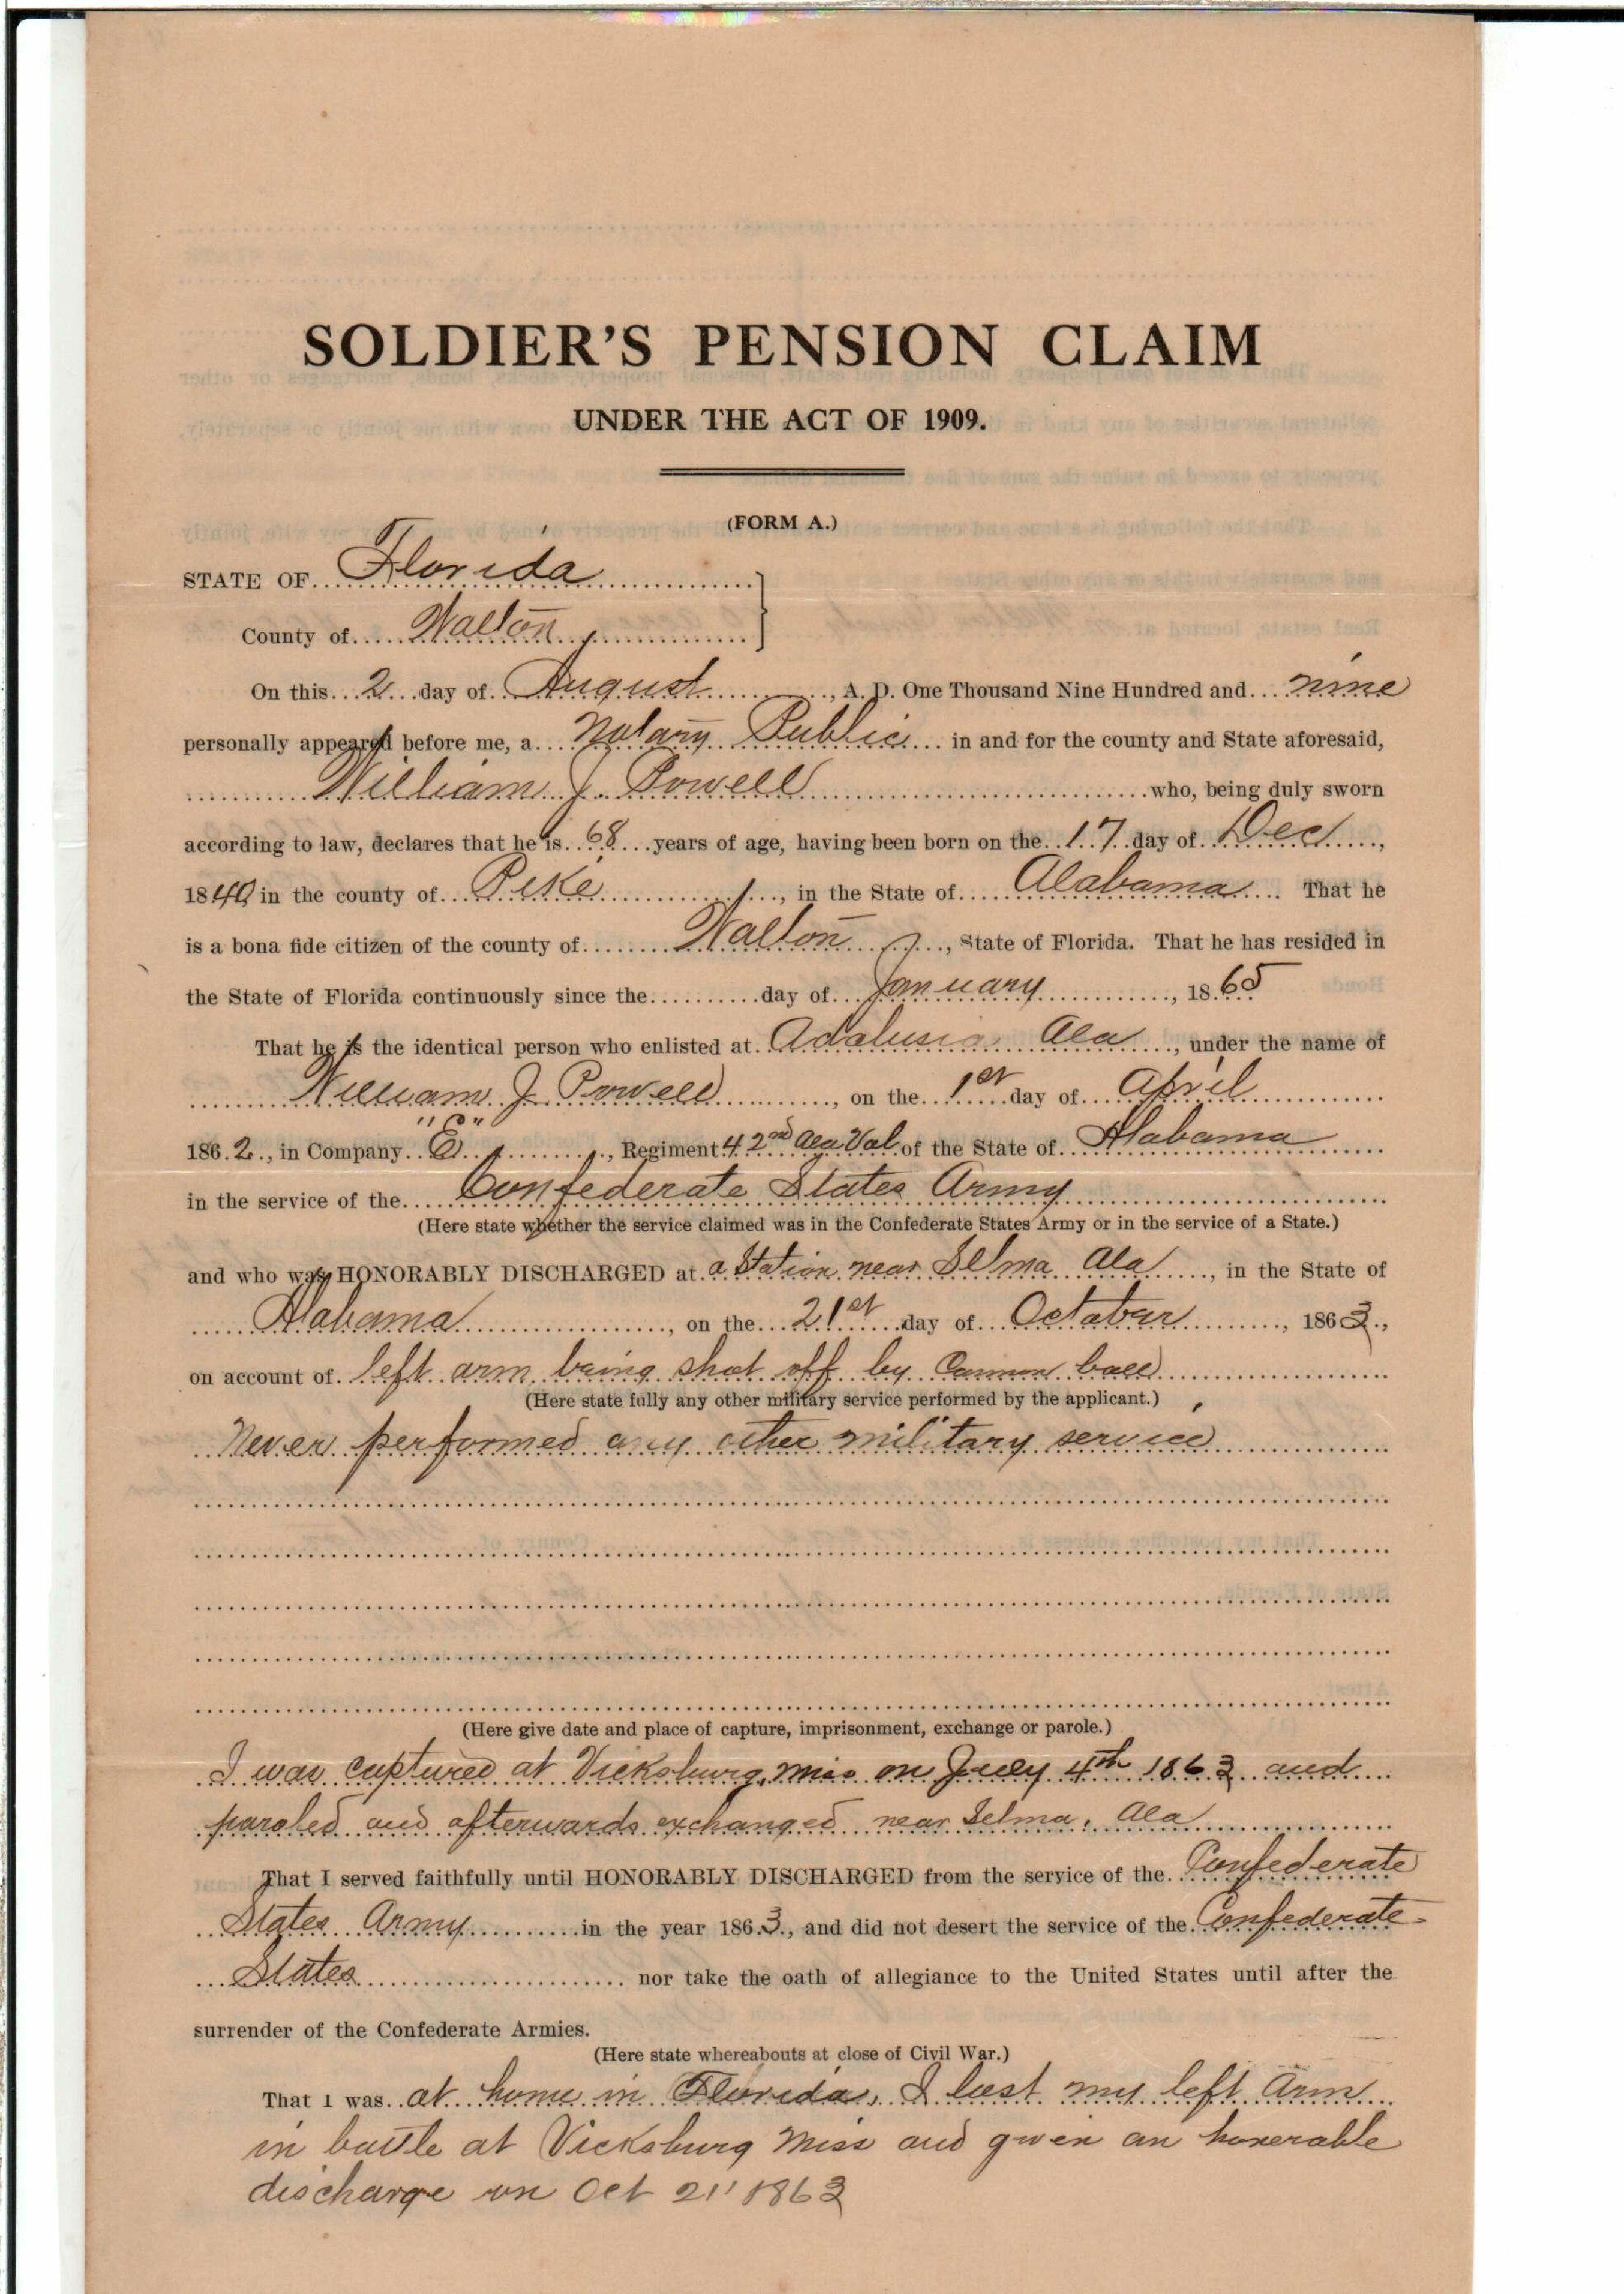 SOLDIER'S PENSION CLAIM
UNDER THE ACT OF 1909.
(FORM A.)
STATE OF Florida
County of Walton
On this 2 day of August, A. D. One Thousand Nine Hundred and nine
personally appeared before me, a Notary Public in and for the county and State aforesaid,
William J. Powell who, being duly sworn
according to law, declares that he is 68 years of age, having been born on the 17 day of Dec,
1840 in the county of Pike, in the State of Alabama. That he
is a bona fide citizen of the county of Walton, State of Florida. That he has resided in
the State of Florida continuously since the day of January, 1865
That he is the identical person who enlisted at Adalusia Ala, under the name of
William J. Powell, on the 1st day of April
1862, in Company "E", Regiment 42nd Ala Vol of the State of Alabama
in the service of the Confederate States Army
(Here state whether the service claimed was in the Confederate States Army or in the service of a State.)
and who was HONORABLY DISCHARGED at a Station near Selma Ala, in the State of
Alabama, on the 21st day of October, 1863,
on account of left arm being shot off by Cannon ball
(Here state fully any other military service performed by the applicant.)
Never performed any other military service
(Here give date and place of capture, imprisonment, exchange or parole.)
I was captured at Vicksburg, Miss on July 4th 1863 and
paroled and afterwards exchanged near Selma, Ala
That I served faithfully until HONORABLY DISCHARGED from the service of the Confederate
States Army in the year 1863, and did not desert the service of the Confederate
States nor take the oath of allegiance to the United States until after the
surrender of the Confederate Armies.
(Here state whereabouts at close of Civil War.)
That I was at home in Florida, I lost my left Arm
in battle at Vicksburg Miss and given an honerable
discharge on Oct 21" 1863